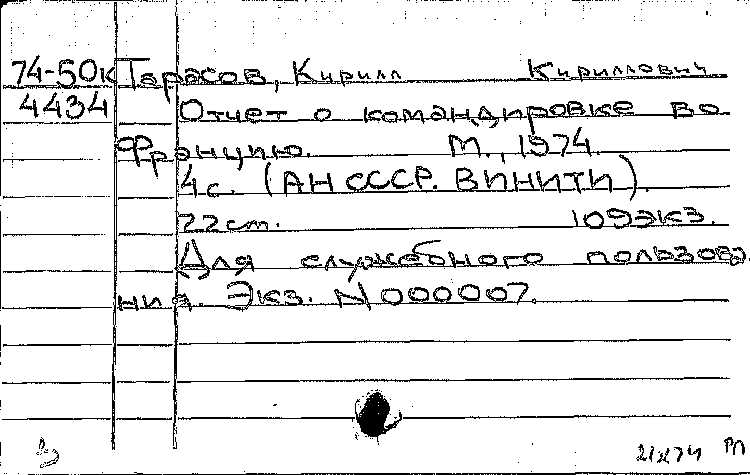 74-50к Тарасов, Кирилл Кириллович
4434 Отчет о командировке во
Францию. М., 1974.
4с. (АН СССР. ВИНИТИ).
22см. 109экз.
Для служебного пользова
ния. Экз. N 000007.
РП